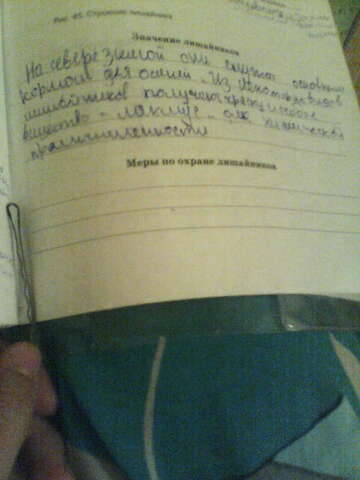 Рис. 65. Строение лишайника
Значение лишайников
На севере зимой они служат основным
кормом для оленей. Из некоторых видов
лишайников получают красу и особое
вещество - лакмус - для химической
промышленности
Меры по охране лишайников